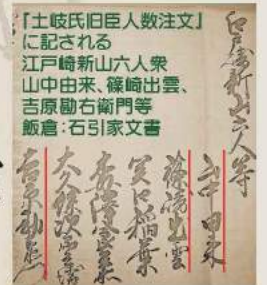 『土岐氏旧臣人数注文』
に記される
江戸崎新山六人衆
山中由来、篠崎出雲、
吉原勘右衛門等
飯倉：石引家文書
江戸崎新山六人等
山中由来
篠崎出雲
関口稲葉